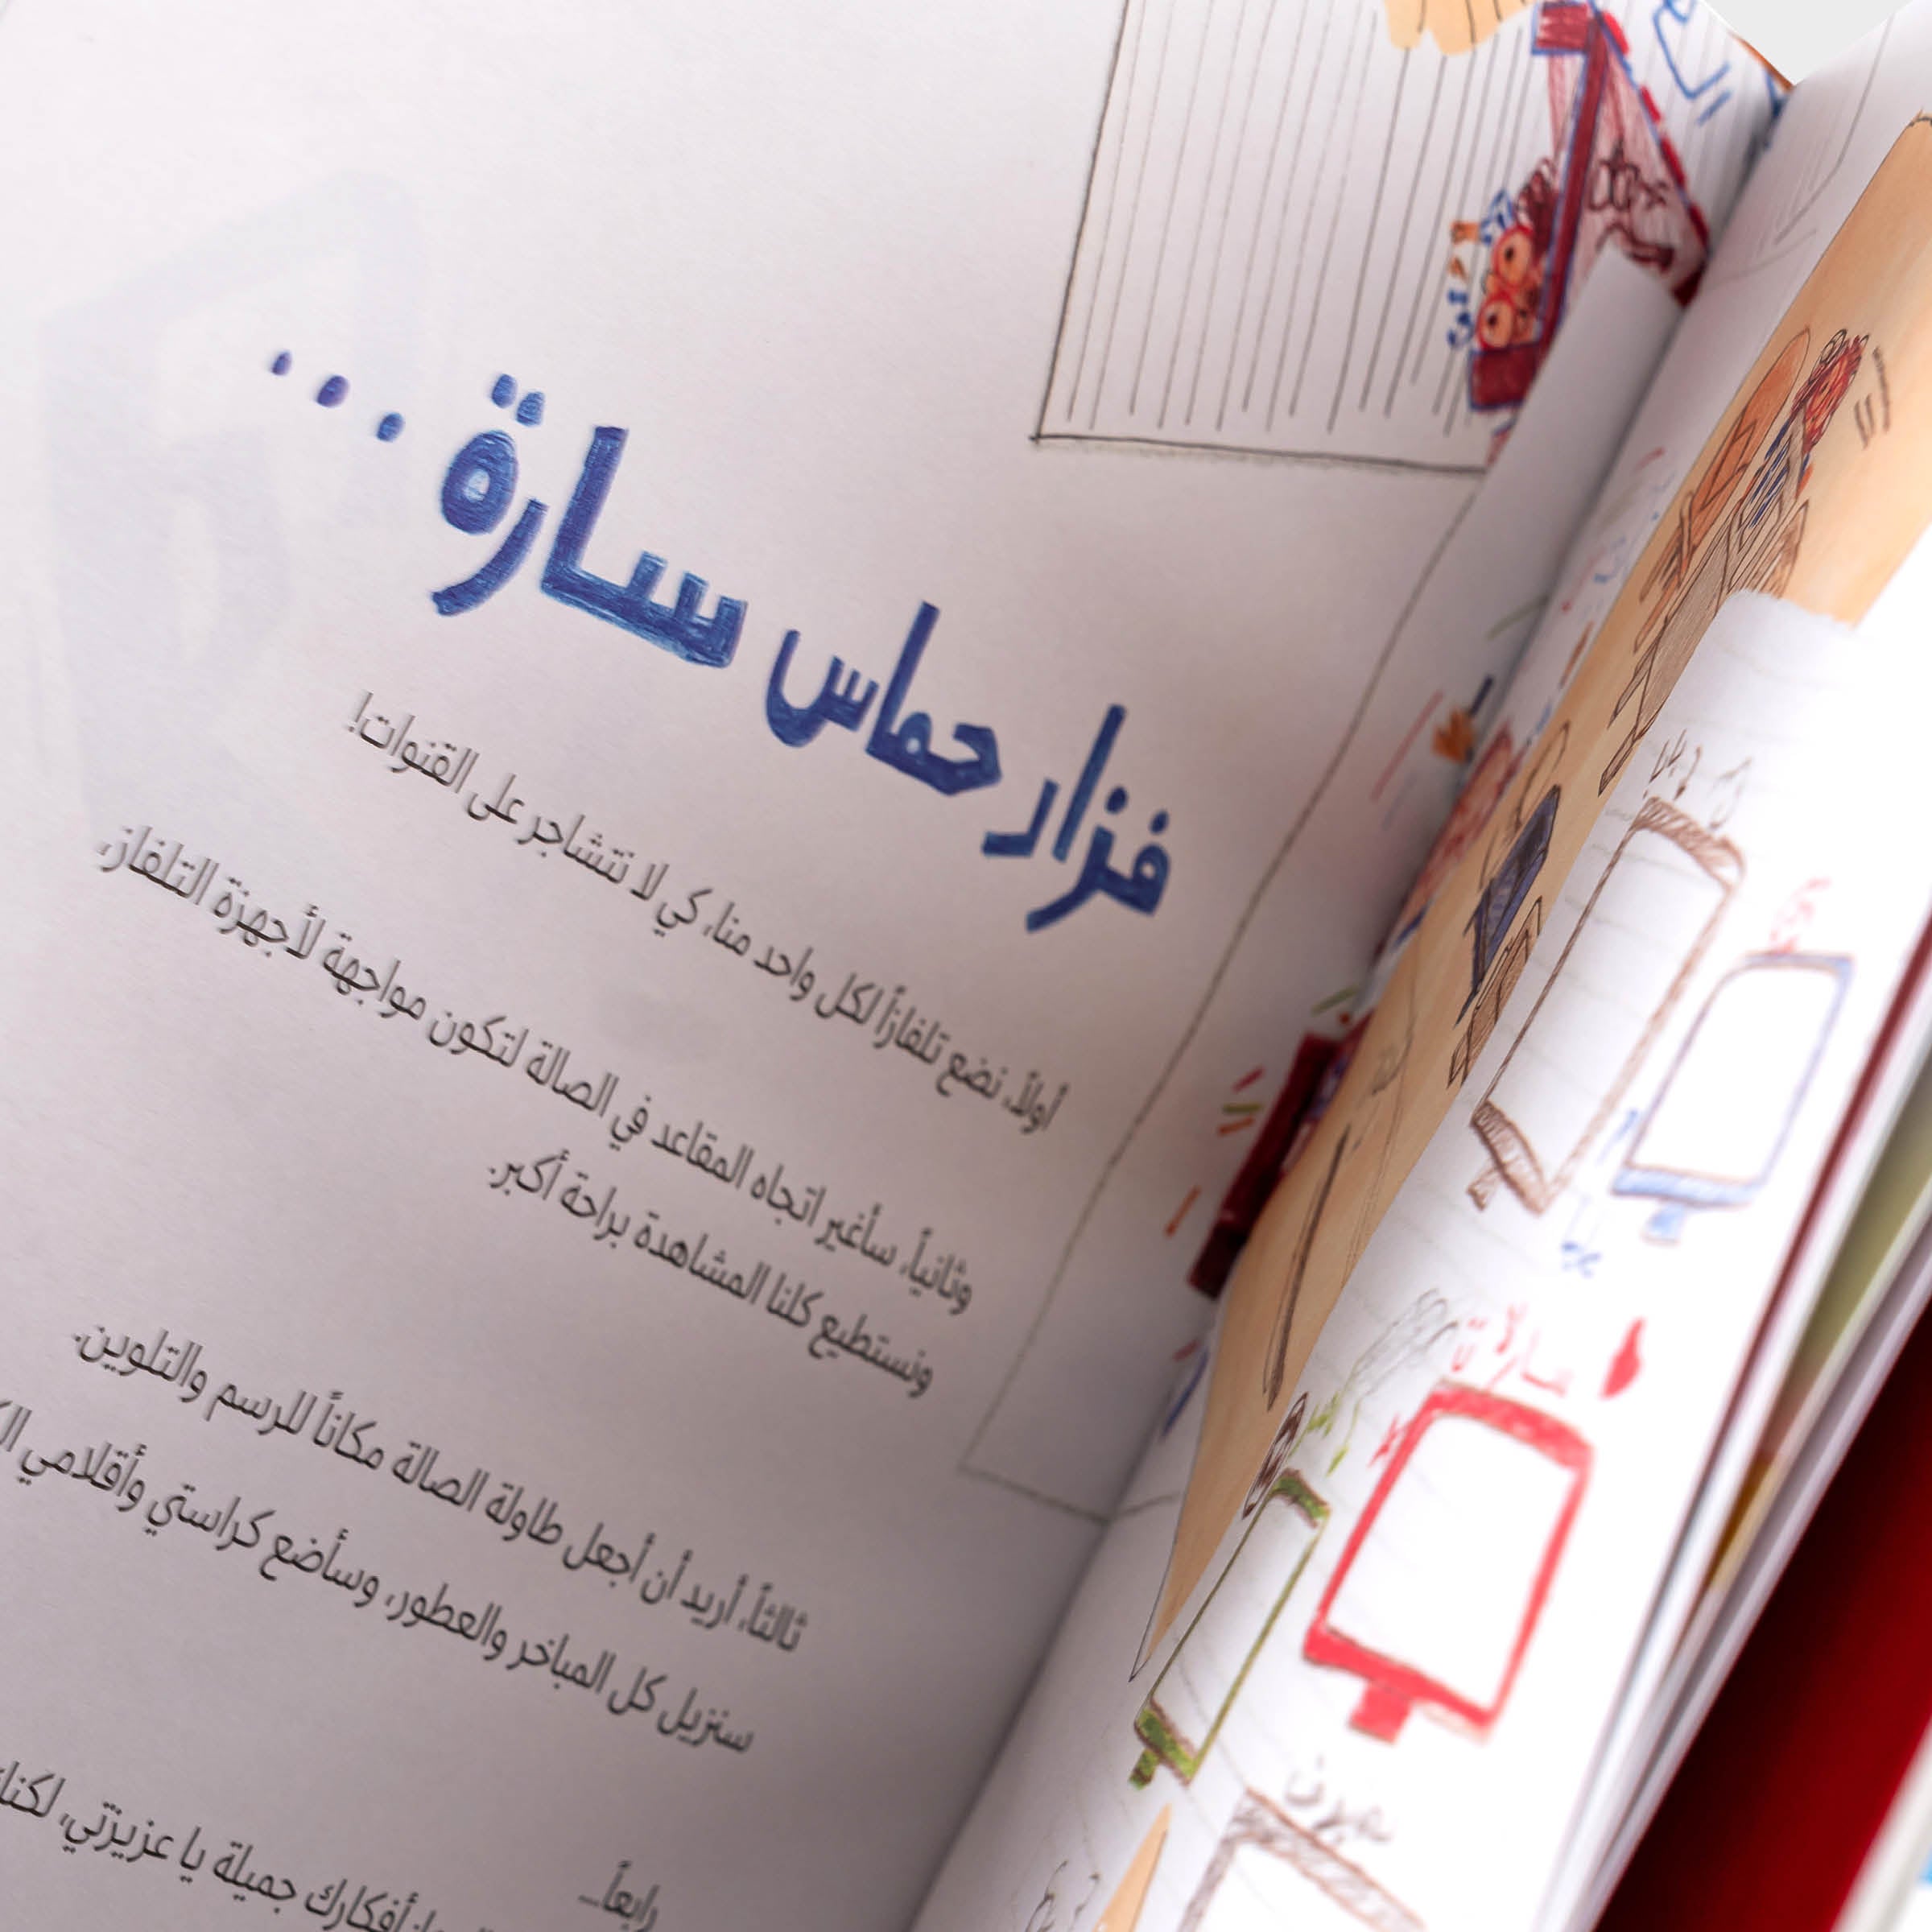 فزار حماس سارة...
أولاً، نضع تلفازاً لكل واحد منا، كي لا نتشاجر على القنوات!
وثانياً، سأغير اتجاه المقاعد في الصالة لتكون مواجهة لأجهزة التلفاز،
ونستطيع كلنا المشاهدة براحة أكبر.
ثالثاً، أريد أن أجعل طاولة الصالة مكاناً للرسم والتلوين.
سنزيل كل المباخر والعطور، وسأضع كراستي وأقلامي
رابعاً...
أفكارك جميلة يا عزيزتي، لكننا
سارة